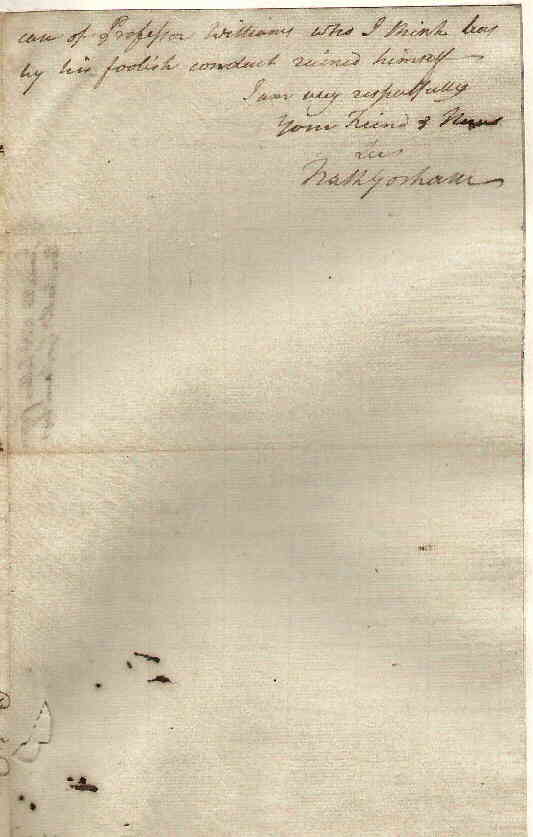 case of Professor Williams who I think has
by his foolish conduct ruined himself
I am very respectfully
Your Friend &
Nath Gorham